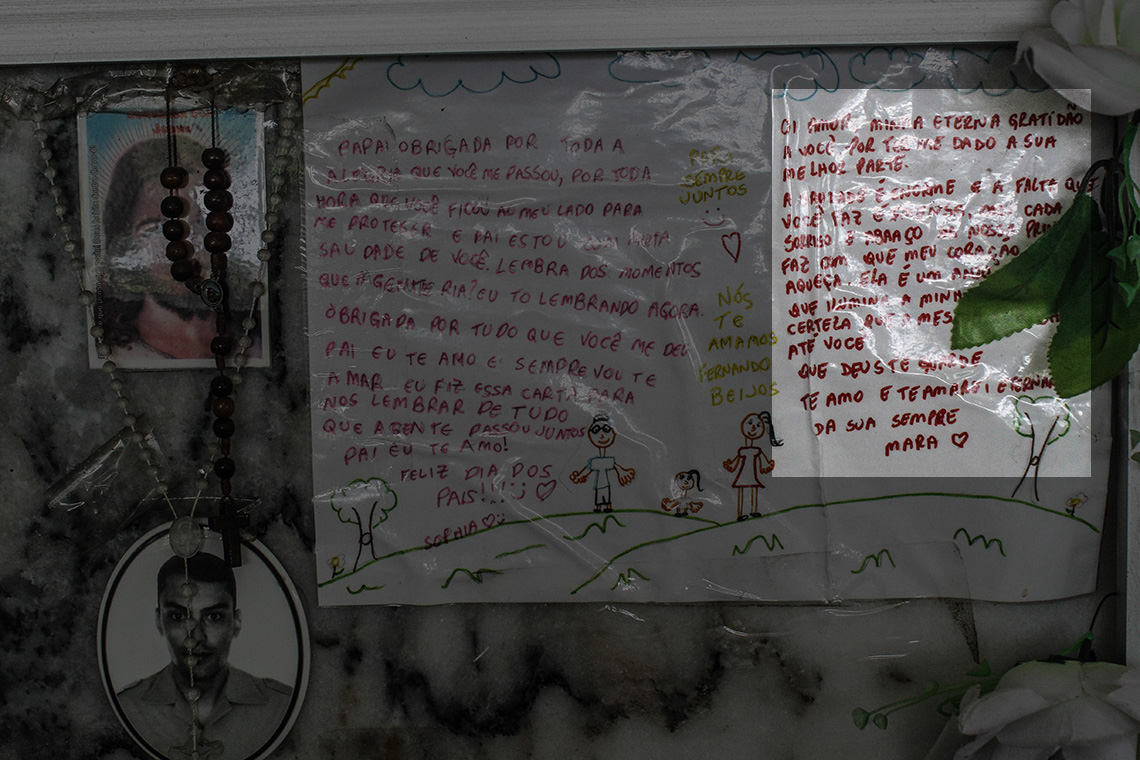 PAPAI OBRIGADA POR TODA A
ALEGRIA QUE VOCÊ ME PASSOU, POR TODA
HORA QUE VOCÊ FICOU AO MEU LADO PARA
ME PROTEGER E PAI ESTOU COM MUITA
SAUDADE DE VOCÊ. LEMBRA DOS MOMENTOS
QUE A GENTE RIA? EU TO LEMBRANDO AGORA.
OBRIGADA POR TUDO QUE VOCÊ ME DEU
PAI EU TE AMO E SEMPRE VOU TE
AMAR EU FIZ ESSA CARTA PARA
NOS LEMBRAR DE TUDO
QUE A GENTE PASSOU JUNTOS
PAI EU TE AMO!
FELIZ DIA DOS
PAIS!!!
SOPHIA
PARA
SEMPRE
JUNTOS
NÓS
TE
AMAMOS
FERNANDO
BEIJOS
OI AMOR MINHA ETERNA GRATIDÃO
A VOCÊ POR TER ME DADO A SUA
MELHOR PARTE.
A SAUDADE É ENORME E A FALTA QUE
VOCÊ FAZ É IMENSA, MAS CADA
SORRISO E ABRAÇO DE NOSSA
FAZ COM QUE MEU CORAÇÃO
AQUEÇA, ELA É UM
QUE ILUMINA A MINHA
CERTEZA QUE A MESMA
ATÉ VOCÊ
QUE DEUS TE GUARDE
TE AMO E TE AMAREI
DA SUA SEMPRE
MARA